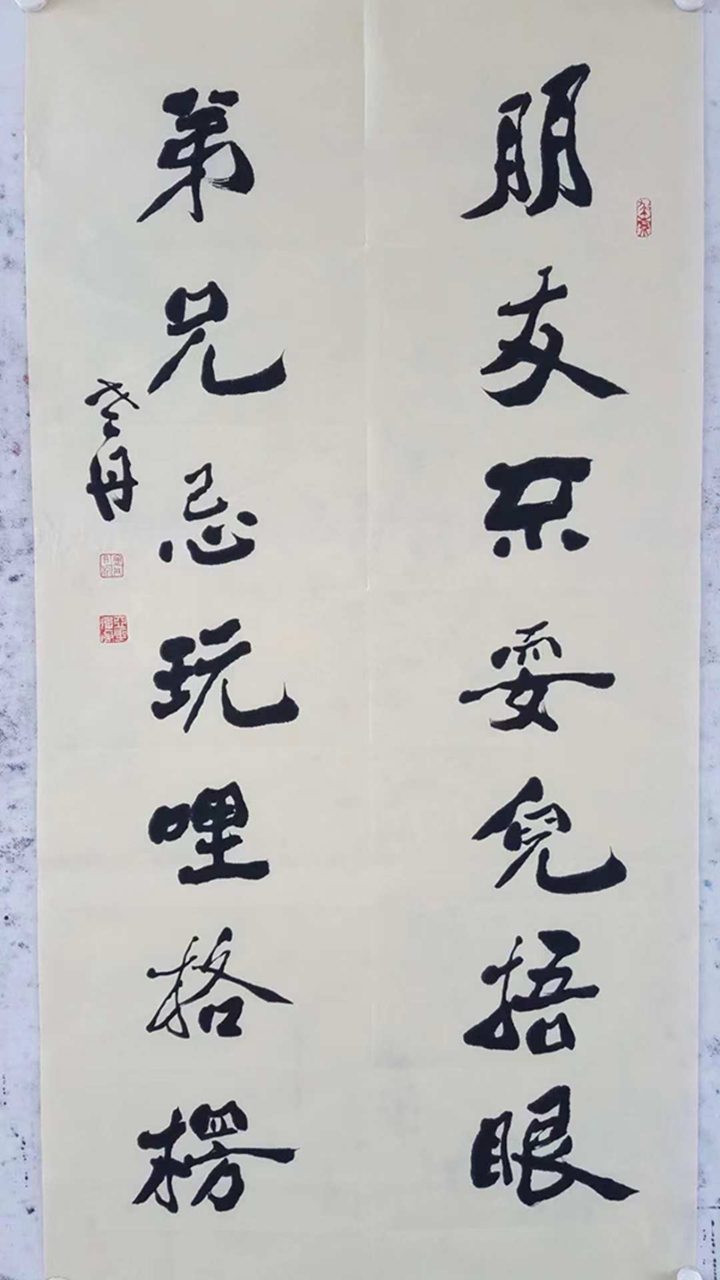 朋友不耍兒捂眼
弟兄忌玩哩格楞
老丹